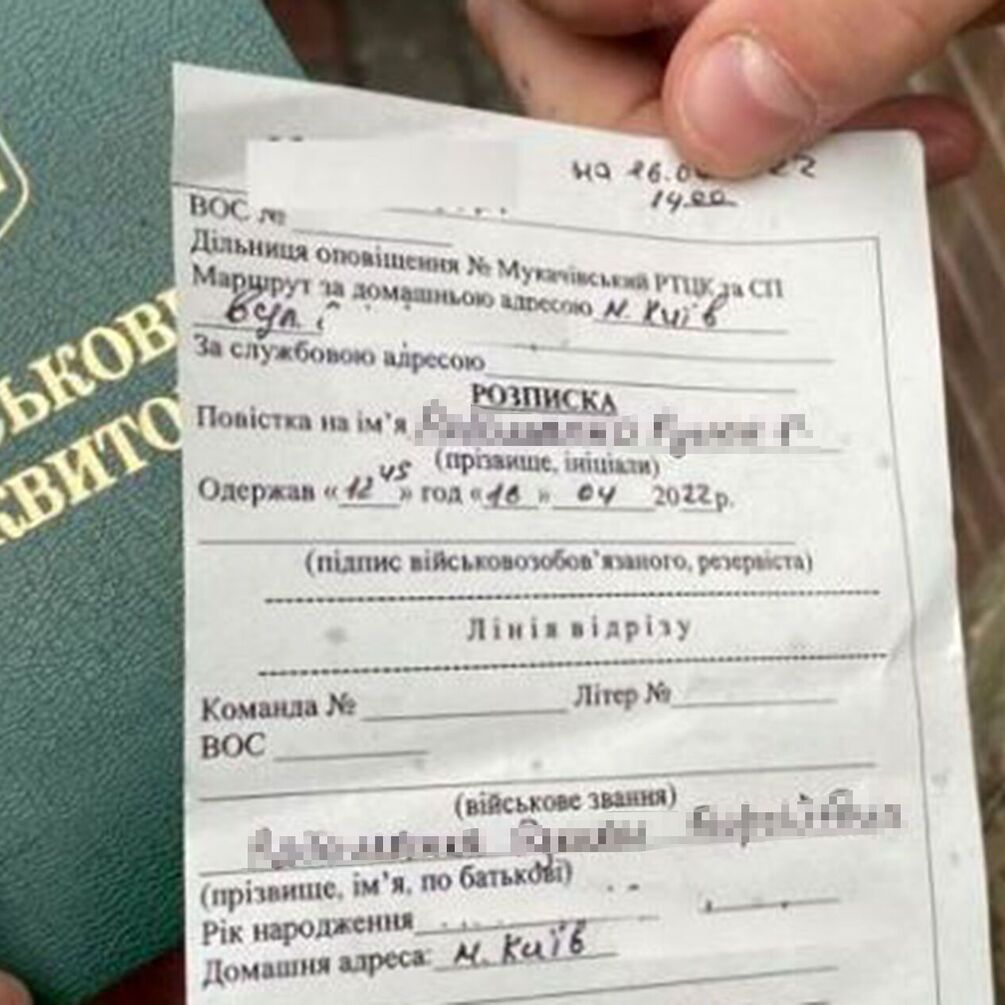 ЬКОВ
КВИТО
на 26.0 22
14 00
ВОС №
Дільниця оповіщення № Мукачівський РТЦК та СП
Маршрут за домашньою адресою м. Київ
вул
За службовою адресою
РОЗПИСКА
Повістка на ім’я
(прізвище, ініціали)
Одержав «12 45» год «16» 04 2022 р.
(підпис військовозобов’язаного, резервіста)
Лінія відрізу
Команда № Літер №
ВОС
(військове звання)
(прізвище, ім’я, по батькові)
Рік народження
Домашня адреса: м. Київ